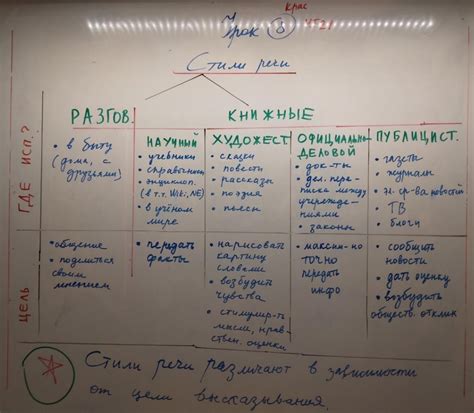 Крас
Урок 8
ЧТ21
Стили речи
РАЗГОВ.
КНИЖНЫЕ
НАУЧНЫЙ
ХУДОЖЕСТ.
ОФИЦИАЛЬНО-
ДЕЛОВОЙ
ПУБЛИЦИСТ.
ГДЕ ИСП.?
• в быту
(дома, с
друзьями)
• учебники
• справочники
• энциклоп.
(в т.ч. Wiki, NE)
• в учёном
мире
• сказки
• повести
• рассказы
• поэзия
• пьесы
• док-ты
• дел. пере-
писка между
учрежде-
ниями
• законы
• газеты
• журналы
• ТВ
• блоги
ЦЕЛЬ
• общение
• поделиться
своим
мнением
• передать
факты
• нарисовать
картину
словами
• возбудить
чувства
• стимулир-ть
мысли, нрав-
ствен. оценки
• максим-но
точно
передать
инфо
• сообщить
новости
• дать оценку
• возбудить
обществ. отклик
Стили речи различают в зависимости
от цели высказывания.